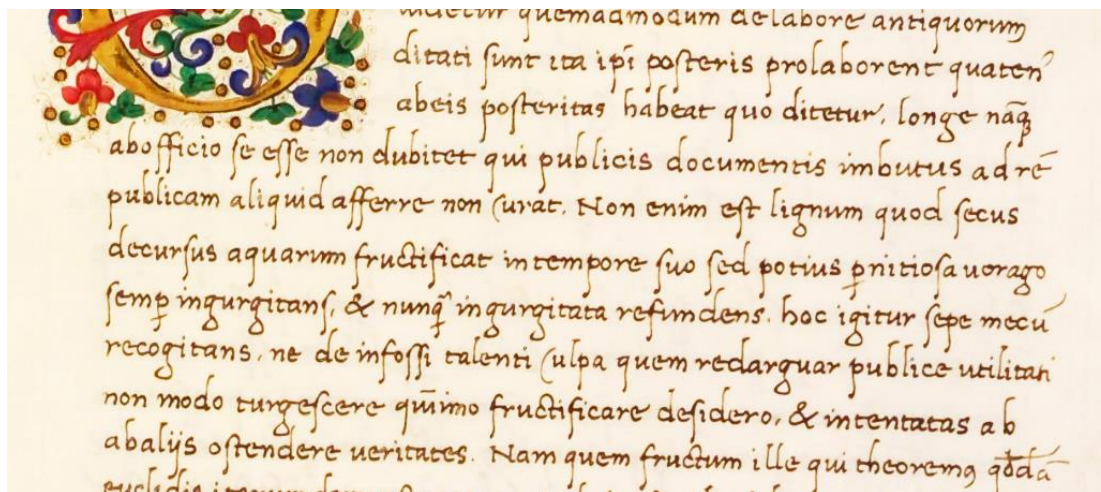 uidetur quemadmodum de labore antiquorum
ditati sunt ita ipī posteris prolaborent quaten᾽
abeis posteritas habeat quo ditetur. longe nāqꝫ
abofficio se esse non dubitet qui publicis documentis imbutus ad rē
publicam aliquid afferre non curat. Non enim est lignum quod secus
decursus aquarum fructificat intempore suo sed potius ꝑnitiosa uorago
semꝑ ingurgitans, & nunq̄ ingurgitata refundens. hoc igitur sepe mecū
recogitans, ne de infossi talenti culpa quem redarguar publice utilitati
non modo turgescere quīimo fructificare desidero, & intentatas ab
abalijs ostendere ueritates. Nam quem fructum ille qui theoremꝫ qddā
euclidis iterum